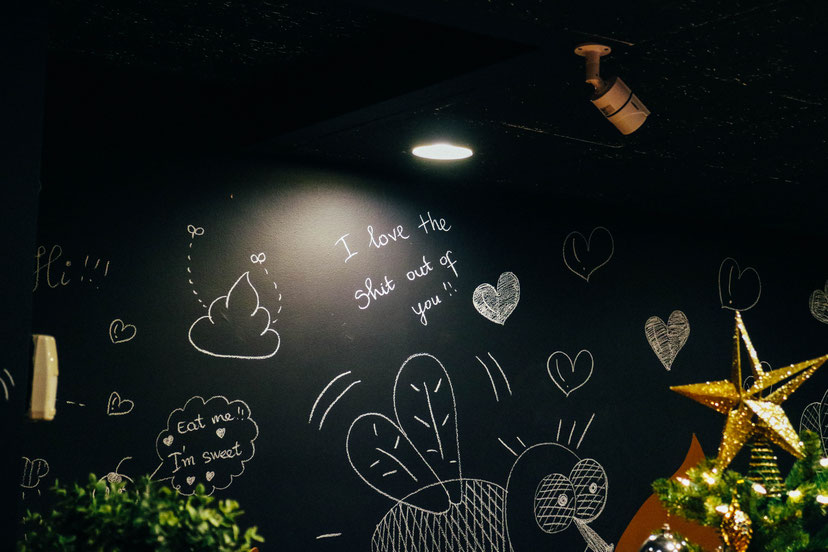 Hi!!!
I love the
shit out of
you!!
Eat me!!
I'm sweet